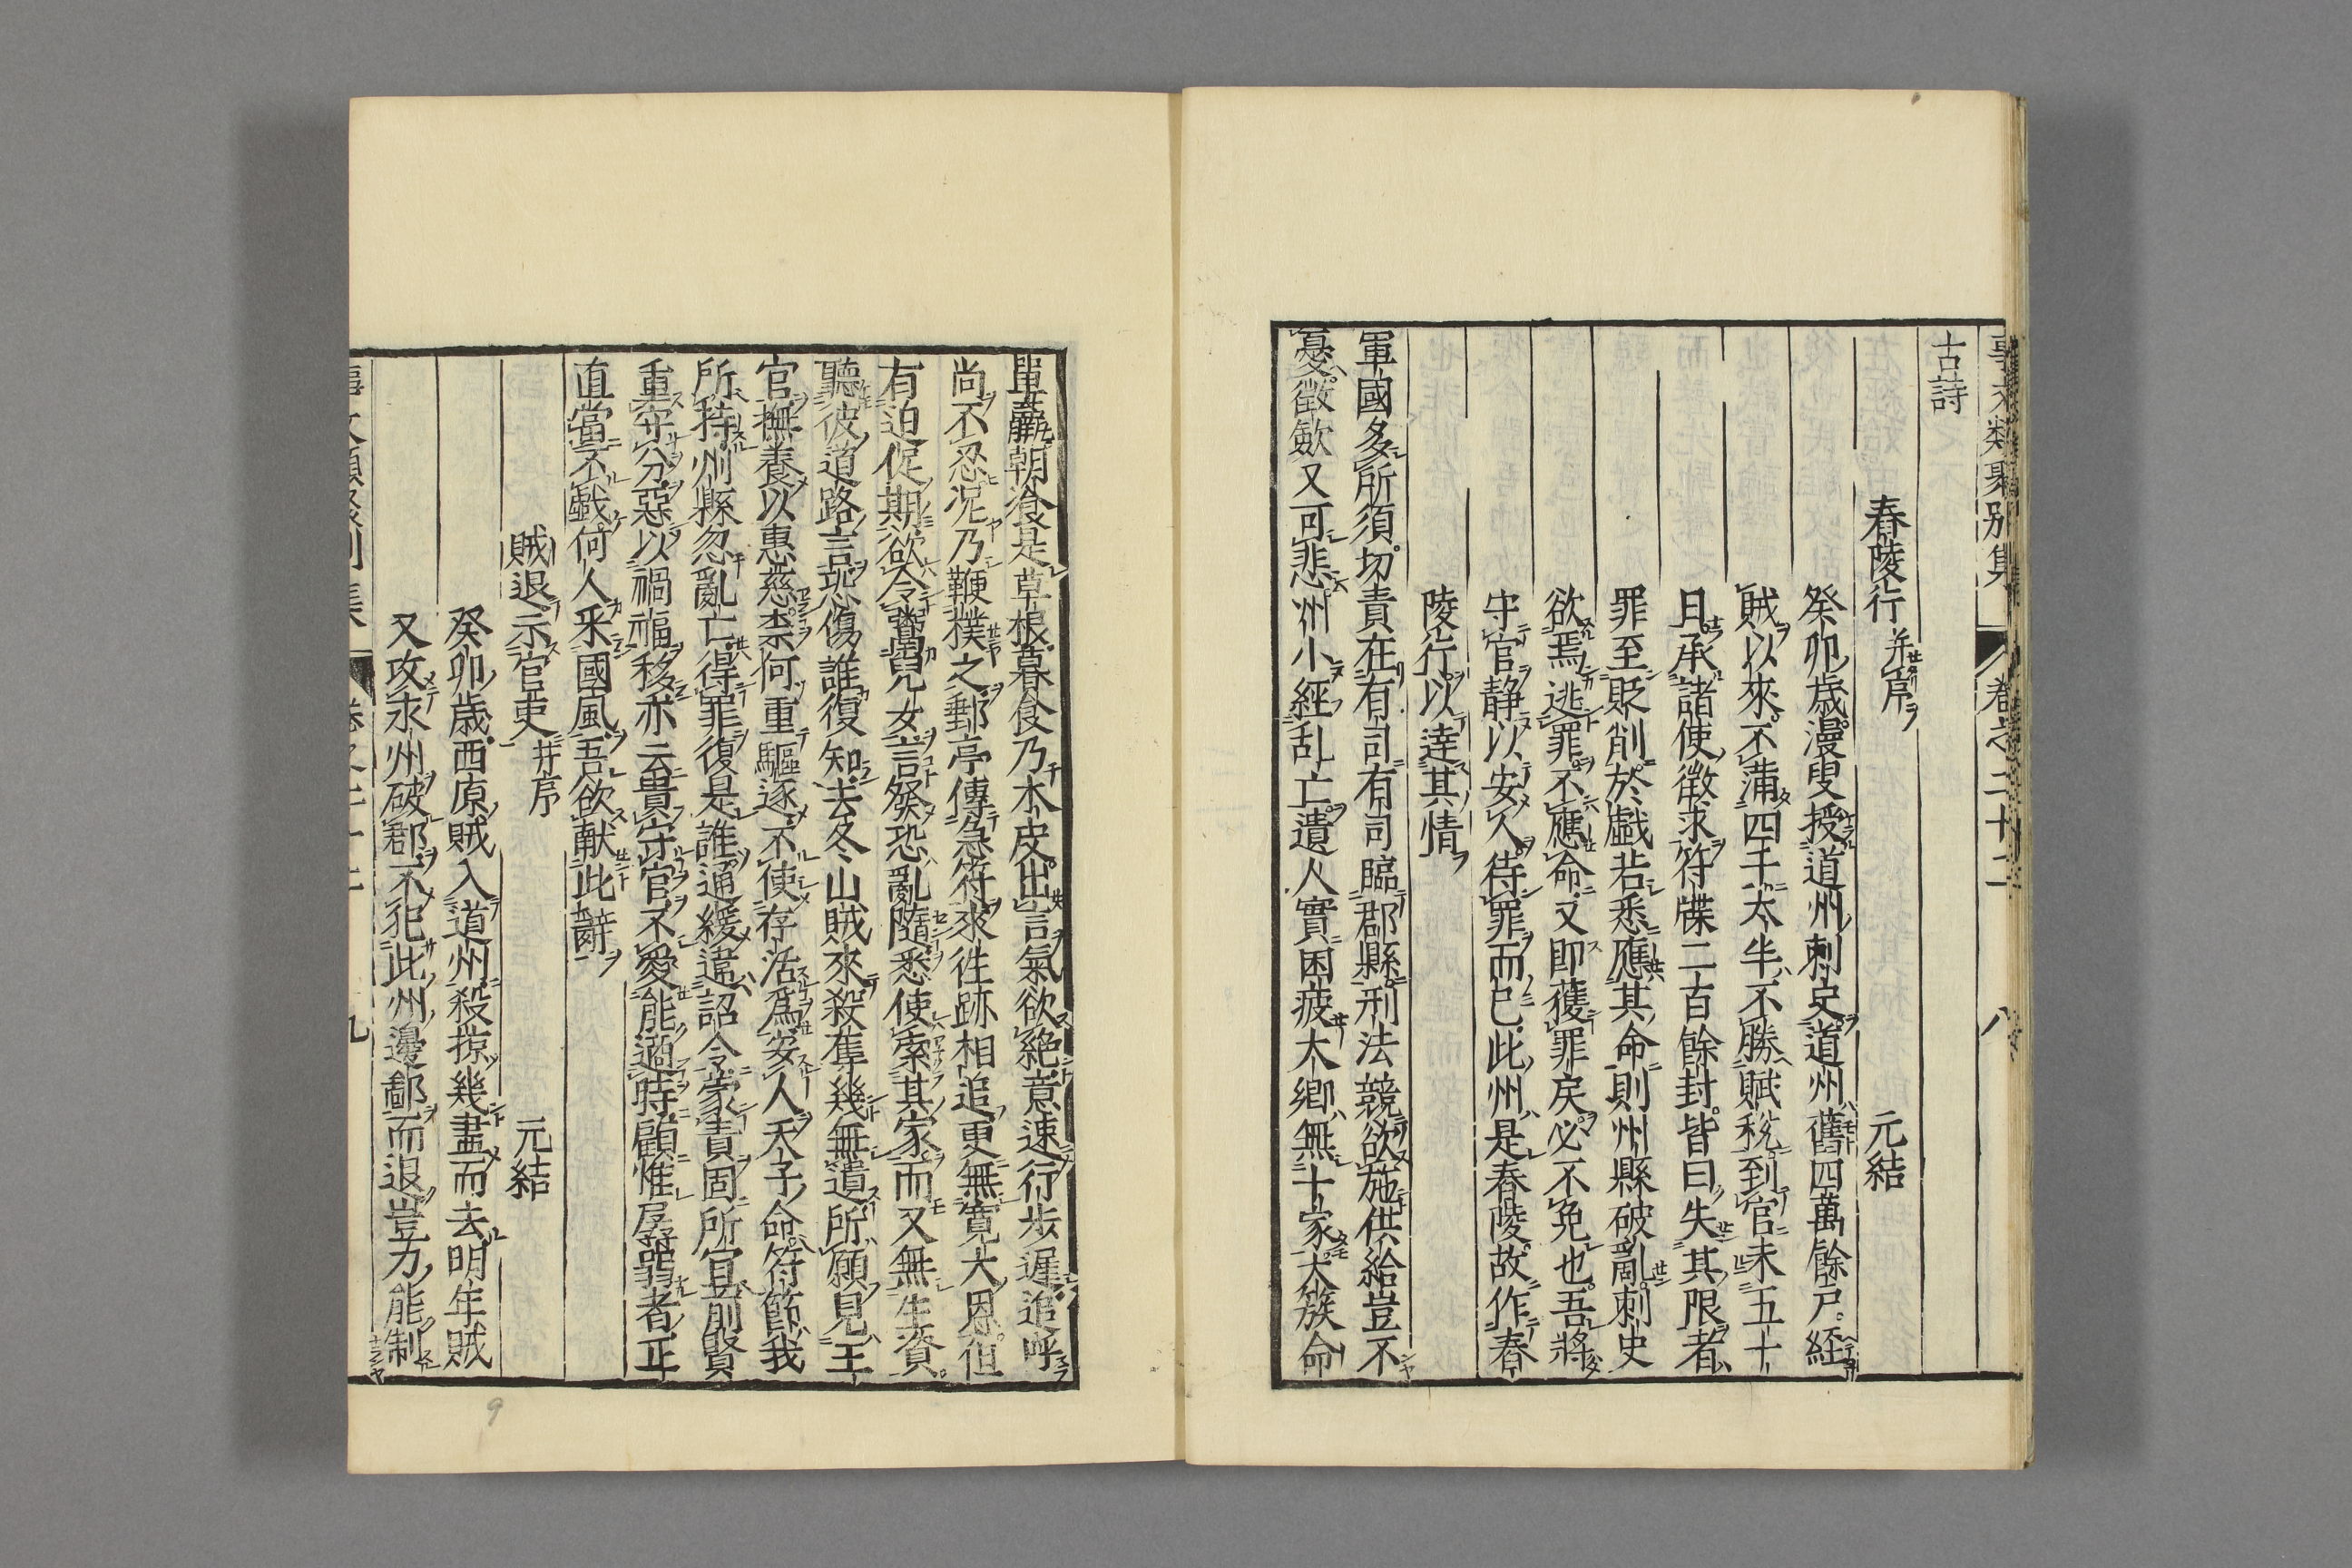 事文類聚別集 卷之二十二 八
古詩
舂陵行 并序 元結
癸卯歳漫叟授道州刺史道州舊四萬餘戸經
賊以來不滿四千太半不勝賦稅到官未五十
日承諸使徵求符牒二百餘封皆曰失其限者
罪至貶削於戯若悉應其命則州縣破亂刺史
欲焉逃罪不應命又即獲罪戾必不免也吾將
守官静以安人待罪而已此州是舂陵故作舂
陵行以逹其情
軍國多所須切責在有司有司臨郡縣刑法競欲施供給豈不
憂徵歛又可悲州小經乱亡遺人實困疲大郷無十家大簇命
單羸朝飡是草根暮食乃木皮出言氣欲絶意速行歩遲追呼
尚不忍況乃鞭撲之郵亭傳急符來徃跡相追更無寛大恩但
有迫促期欲令鬻兒女言發恐亂隨悉使索其家而又無生資
聽彼道路言恐傷誰復知去冬山賊來殺奪幾無遺所願見王
官撫養以惠慈柰何重驅逐不使存活爲安人天子命符節我
所持州縣忽亂亡得罪復是誰逋緩違詔令蒙責固所宜前賢
重守分惡以禍福移亦云貴守官不愛能適時顧惟孱弱者正
直當不戯何人釆國風吾欲献此辭
賊退示官吏 并序 元結
癸卯歳西原賊入道州殺掠幾盡而去明年賊
又攻永州破郡不犯此州邊鄙而退豈力能制
事文類聚別集 卷之二十二 九
9